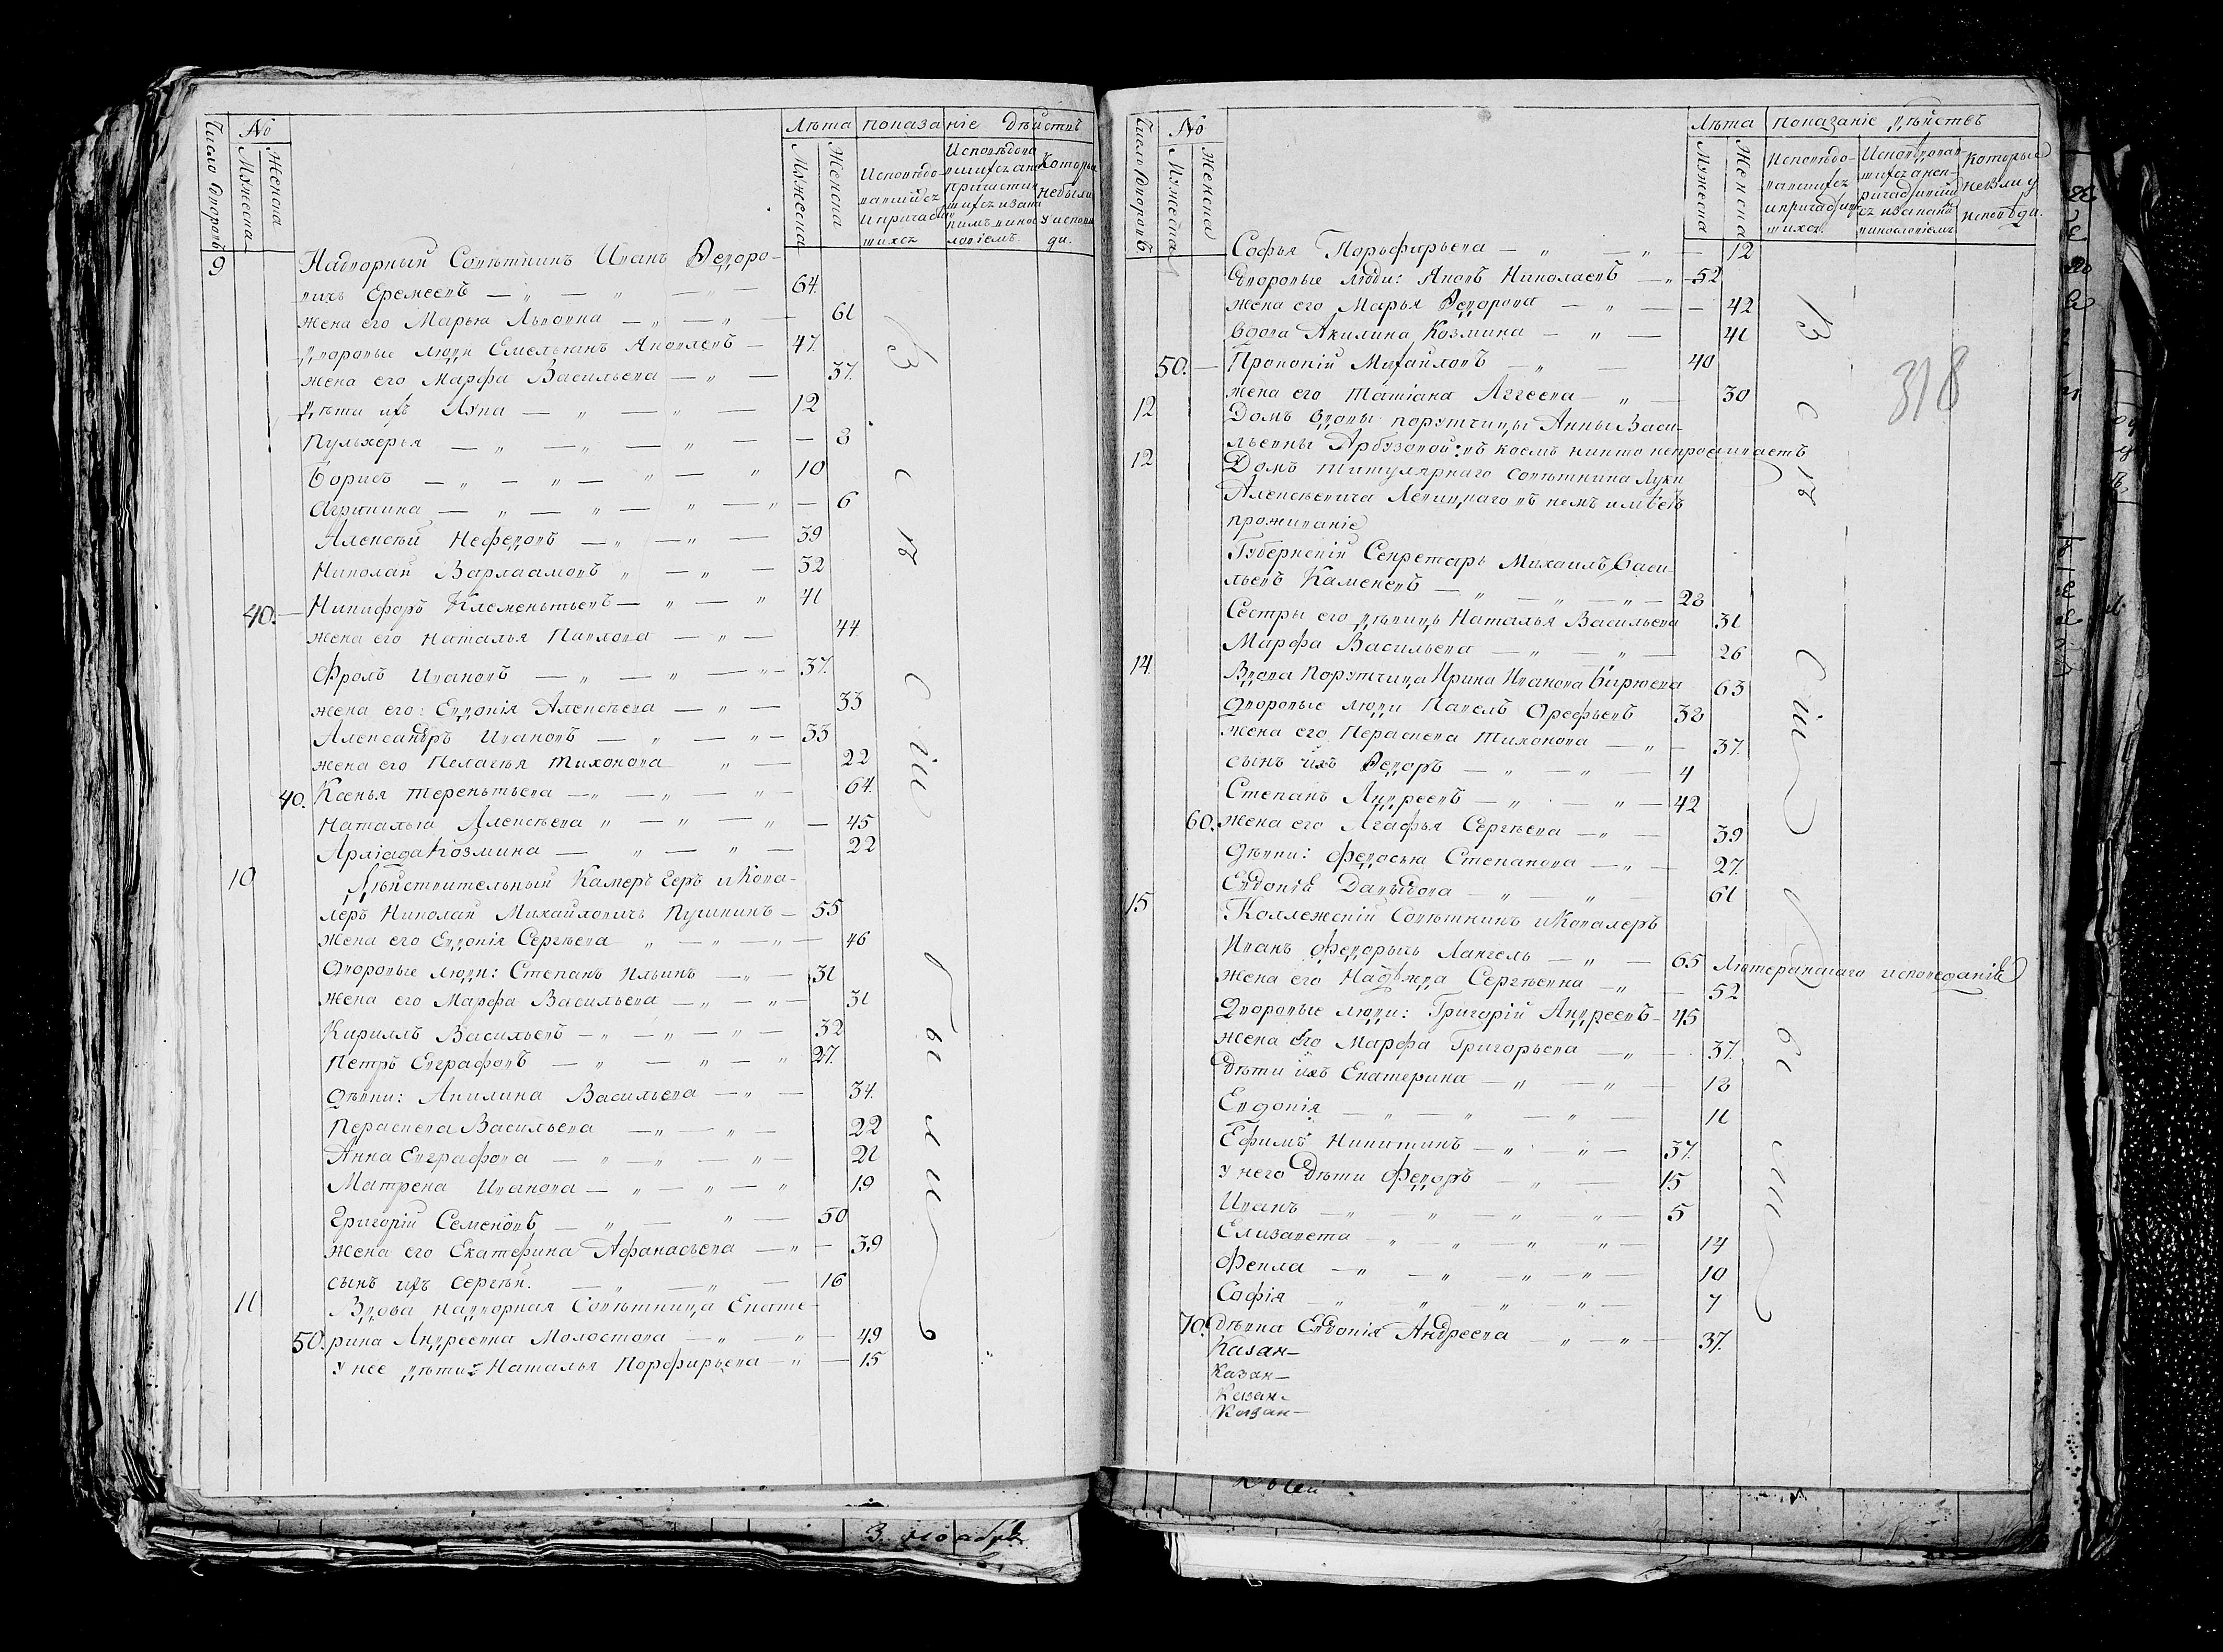 Число дворовъ № Мужеска Женска Лѣта Мужеска Женска показаніе дѣйствъ
Исповѣдовавшихсѧ и причастившихсѧ
Которые не были у исповѣди.
9 Надворный Совѣтникъ Иванъ Ѳедоро-
вичь Еремеевъ — „ — „ — „ — 64.
жена его Марья Львовна — „ — „ — 61
дворовые люди Емельянъ Яковлевъ — 47.
жена его Марфа Васильева — „ — 37.
дѣти ихъ Лука — „ — „ — 12
Пульхерья — „ — „ — „ — 8
Борисъ — „ — „ — „ — „ 10
Агрипина — „ — „ — „ — „ — 6
Алексѣй Нефедовъ — „ — „ — 39
Николай Варлаамовъ „ — „ — 32
40. — Никифоръ Клементьевъ — „ — „ 41
жена его Наталья Павлова — „ — 44.
Фролъ Ивановъ — „ — „ — „ — 37.
жена его: Евдокія Алексѣева — „ — 33
Александръ Ивановъ — „ — „ — 33
жена его Пелагея Тихонова „ — 22
40. Ксенья Терентьева — „ — „ — „ — 64.
Наталья Алексѣева „ — „ — „ — 45
Козмина — „ — „ — 22
10 Дѣйствительный Камеръ Геръ и Кава-
леръ Николай Михайловичь Пушкинъ — 55
жена его Евдокія Сергѣева „ — „ — „ — 46
Дворовые люди: Степанъ Ильинъ — „ — 31
жена его Марфа Васильева — „ — „ — 31
Кириллъ Васильевъ — „ — „ — „ — 32
Петръ Евграфовъ — „ — „ — „ 27.
Дѣвки: Акилина Васильева — „ — 34.
Параскева Васильева — „ — „ — 22
Анна Евграфова — „ — „ — „ — 21
Матрена Иванова — „ — „ — „ 19
Григорій Семеновъ — „ — „ — 50
жена его Екатерина Афанасьева — „ — 39
сынъ ихъ Сергѣй. — „ — „ — 16
11 Вдова надворная Совѣтница Екате-
50. рина Андреевна Молостова — „ — „ — 49
у нее дѣти: Наталья Порфирьева — „ — 15
3.
Число дворовъ № Мужеска Женска Лѣта Мужеска Женска показаніе дѣйствъ
Исповѣдовавшихсѧ и причастившихсѧ
Которые не были у исповѣди.
318
Софья Порьфирьева — „ — „ — 12
Дворовые люди: Яковъ Николаевъ — „ — 52
жена его Марья Ѳедорова — „ — 42
Вдова Акилина Козмина — „ — 41
50. — Прокопій Михайловъ — „ — 40
жена его Татіана Аггеева — „ — 30
12 Домъ вдовы порутчицы Анны Васи-
льевны Арбузовой: въ коемъ никто непроживаетъ
12 Домъ титулярнаго совѣтника Луки
Алексѣевича Левицкаго въ немъ имѣетъ
проживаніе
Губернскій Секретарь Михаилъ Васи-
льевъ Каменевъ — „ — „ — „ — 28
Сестры его дѣвицы Наталья Васильева 31
Марфа Васильева — „ — „ — 26
14. Вдова Порутчица Ирина Иванова Бирюева 63
Дворовые люди Павелъ Орефьевъ 38
жена его Параскева Тихонова — „ — 37.
сынъ ихъ Ѳедоръ — „ — „ — 4
Степанъ Андреевъ — „ — „ — 42
60. жена его Агафья Сергѣева — „ — 39
Дѣвки: Федосья Степанова — „ — 27.
Евдокія Давыдова — „ — „ — 61
15 Коллежскій Совѣтникъ и Кавалеръ
Иванъ Федорычь Лангель — „ — 65 Лютеранскаго исповеданія
жена его Надежда Сергѣевна — „ — 52
Дворовые люди: Григорій Андреевъ — 45
жена его Марфа Григорьева — „ — 37.
Дѣти ихъ Екатерина — „ — „ — 18
Евдокія — „ — „ — „ — 11
Ефимъ Никитинъ — „ — „ — 37.
у него дѣти Федоръ — „ — 15
Иванъ — „ — „ — „ — „ — 5
Елизавета — „ — „ — „ — „ — 14
Фекла — „ — „ — „ — „ — 10
Софія — „ — „ — „ — „ — 7
70. дѣвка Евдокія Андреева — „ — „ — 37.
Казан—
Казан—
Казан—
Казан—